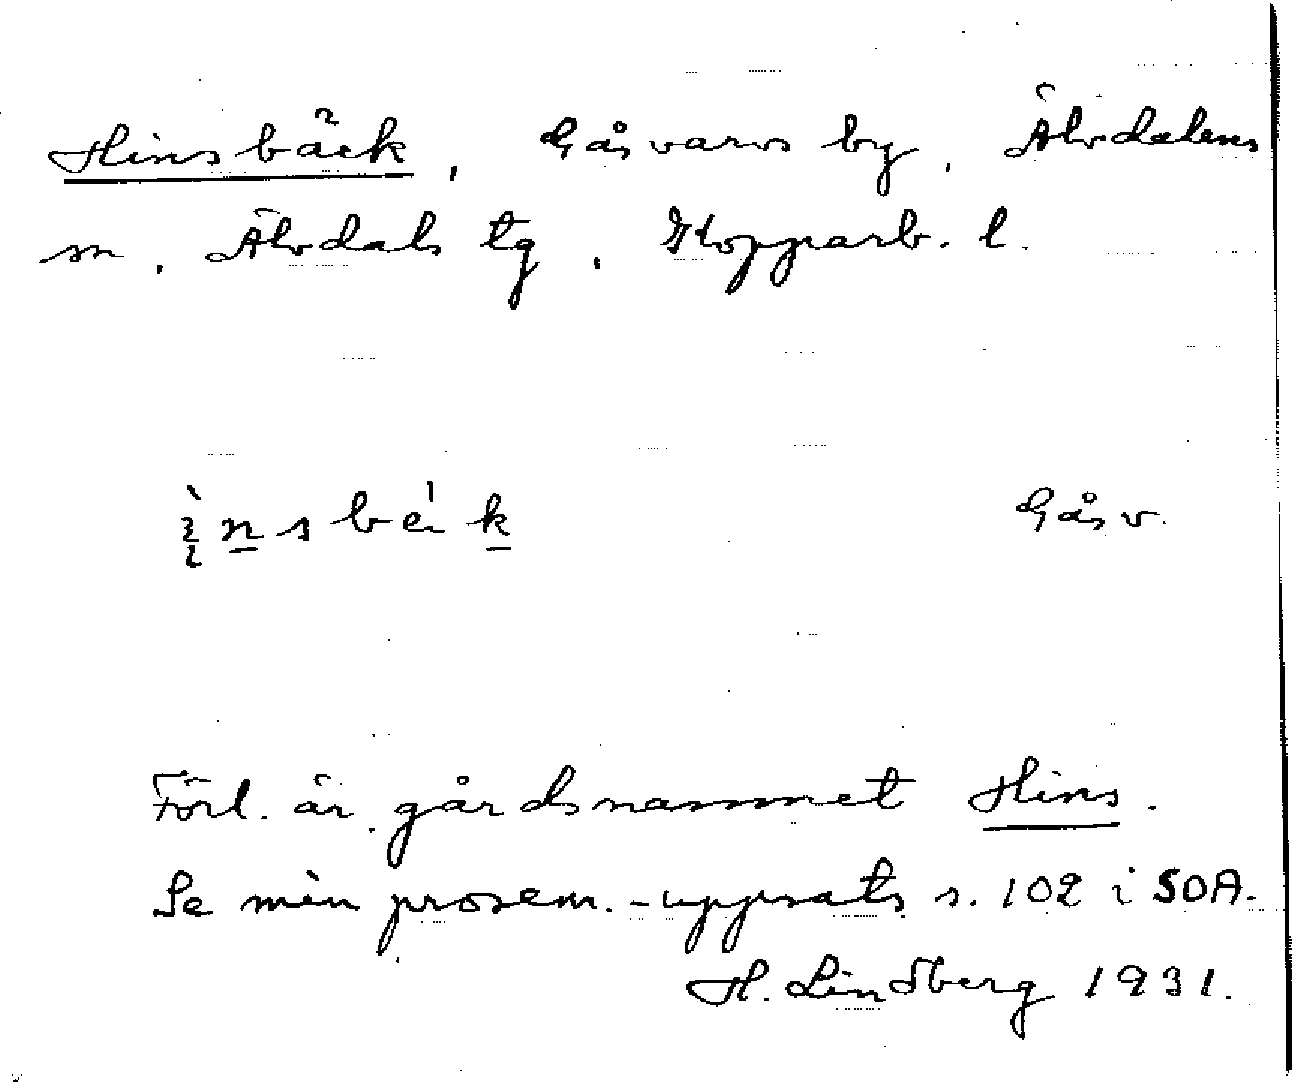 Hinsbäck, Gåsvarvs by, Älvdalens
sn, Älvdals tg, Kopparb. l.
ìnsbék Gåsv.
Förl. är gårdsnamnet Hins.
Se min prosem.-uppsats s. 102 i SOA.
H. Lindberg 1931.